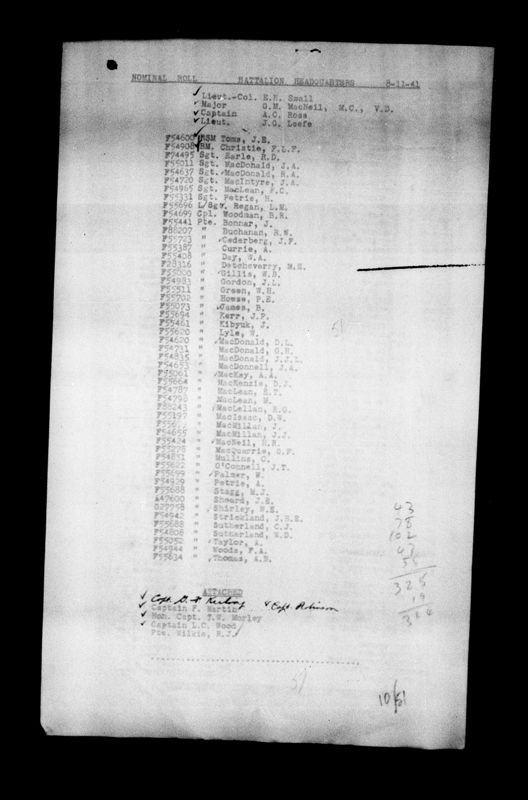 NOMINAL ROLL BATTALION HEADQUARTERS 8-11-41
Lieut.-Col. E.N. Small
Major G.M. MacNeil, M.C., V.D.
Captain A.C. Ross
Lieut. J.G. Leefe
F54600 RSM Toms, J.E.
F54908 BM. Christie, F.L.F.
F74495 Sgt. Earle, R.D.
F55011 Sgt. MacDonald, J.A.
F54637 Sgt. MacDonald, R.A.
F54720 Sgt. MacIntyre, J.A.
F54965 Sgt. MacLean, F.C.
F55331 Sgt. Petrie, H.
F55696 L/Sgt. Regan, L.M.
F54699 Cpl. Woodman, B.R.
F55441 Pte. Bonnar, J.
F88207 " Buchanan, R.N.
F55723 " Cederberg, J.F.
F55387 " Currie, A.
F55408 " Day, W.A.
F28316 " Detcheverry, M.E.
F55000 " Gillis, W.B.
F54983 " Gordon, J.L.
F55511 " Green, W.H.
F55702 " Howse, P.E.
F55073 " James, B.
F55694 " Kerr, J.P.
F55461 " Kibyuk, J.
F55620 " Lyle, W.
F54620 " MacDonald, D.L.
F54731 " MacDonald, G.H.
F54835 " MacDonald, J.J.L.
F54653 " MacDonnell, J.A.
F75061 " MacKay, A.A.
F55664 " MacKenzie, D.J.
F54787 " MacLean, E.T.
F54798 " MacLean, M.
F88243 " MacLellan, R.G.
F55197 " MacIsaac, D.W.
" MacMillan, J.
F54655 " MacMillan, J.J.
F55424 " MacNeil, H.R.
F55278 " MacQuarrie, C.F.
F54851 " Mullins, C.
F55622 " O'Connell, J.T.
F55699 " Palmer, W.
F54929 " Petrie, A.
F55688 " Stagg, M.J.
A47600 " Sheard, J.E.
" Shirley, W.E.
F54942 " Strickland, J.H.E.
F55688 " Sutherland, C.J.
F54808 " Sutherland, W.D.
F55052 " Taylor, A.
F54944 " Woods, F.A.
F55634 " Thomas, A.B.
51
43
78
102
47
55
325
19
ATTACHED
Capt. Robinson
Captain F. Martin
Hon. Capt. T.W. Morley
Captain L.C. Wood
Pte. Wilkie, R.J.
51
10/51